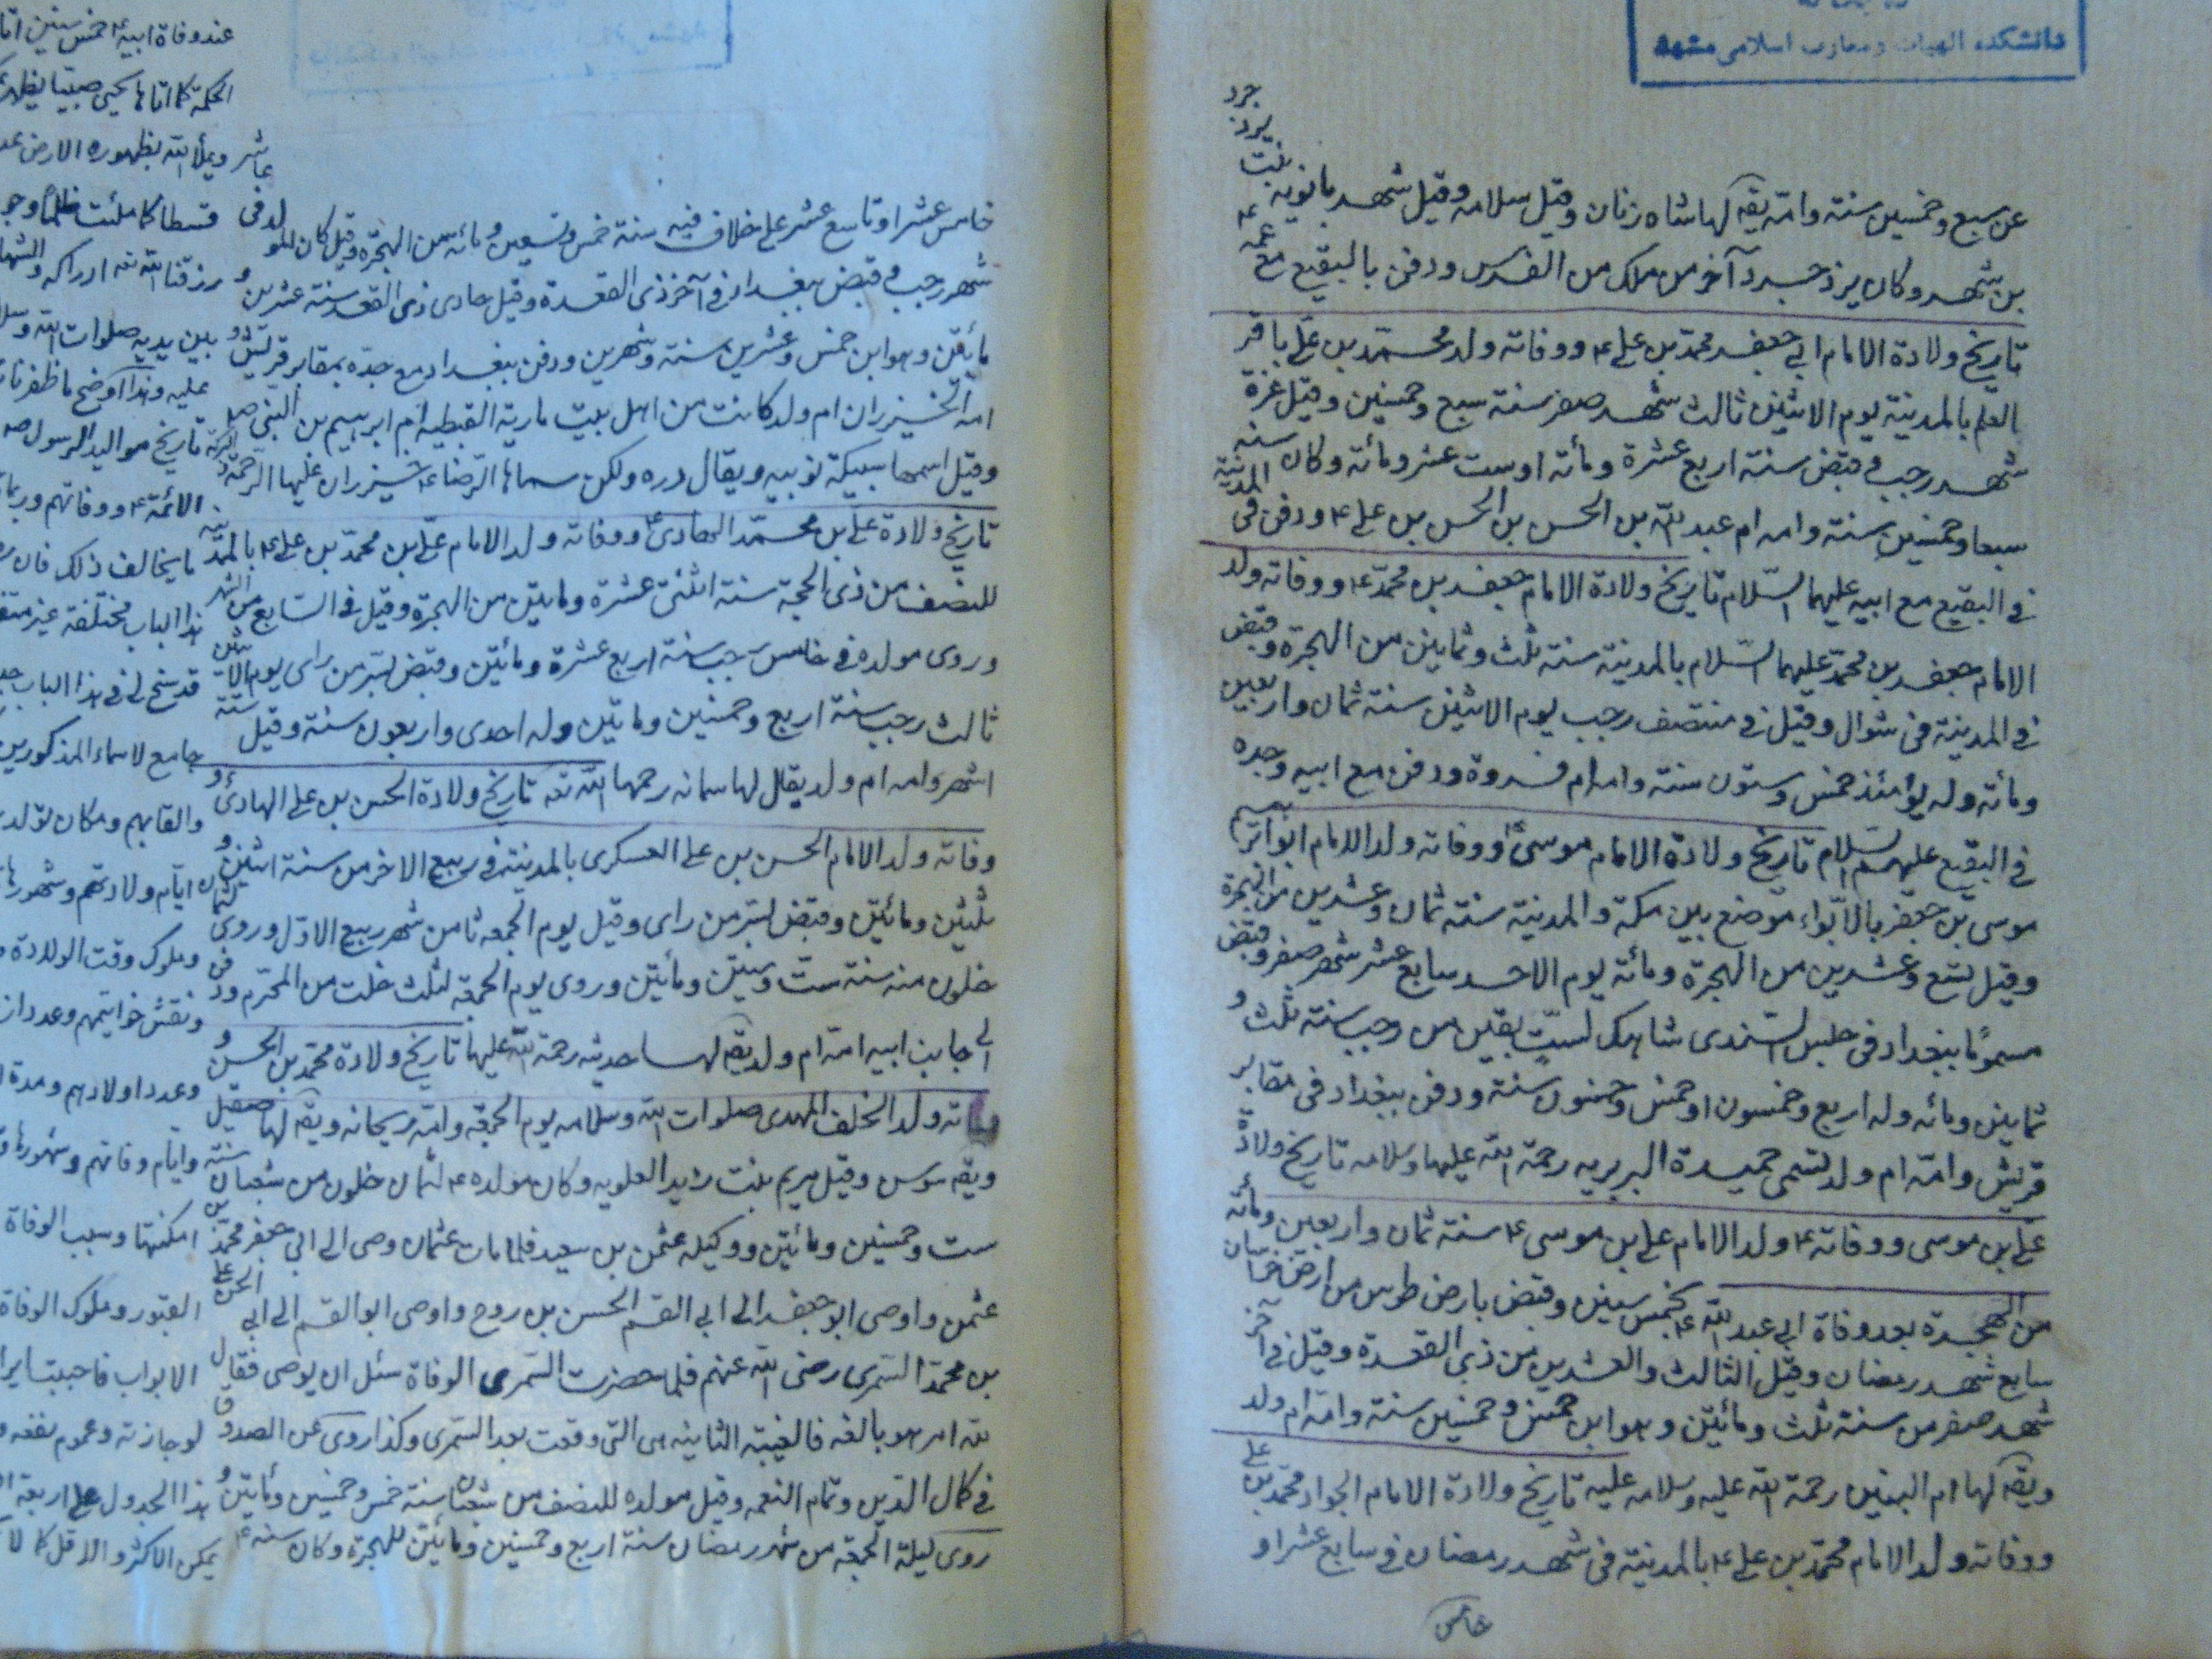 دانشکده الهیات و معارف اسلامی مشهد
عن سبع وخمسین سنة وامّه یقه لها شاه زنان وقیل سلامه وقیل شهر بانویه بنت یزد جرد
بن شهر وکان یزدجرد آخر من ملک من الفرس ودفن بالبقیع مع عمه ع
تاریخ ولادة الامام ابی جعفر محمد بن علی ع ووفاته ولد محمد بن علی باقر
العلم بالمدینة یوم الاثنین ثالث شهر صفر سنة سبع وخمسین وقیل غرة
شهر رجب وقبض سنة اربع عشرة ومأته او ست عشر ومأته وکان سنه
سبعا وخمسین سنة وامه ام عبد الله بن الحسن بن الحسن بن علی ع ودفن فی المدینة
فی البقیع مع ابیه علیهما السلام تاریخ ولادة الامام جعفر بن محمد ع ووفاته ولد
الامام جعفر بن محمد علیهما السلام بالمدینة سنة ثلث وثمانین من الهجرة وقبض
فی المدینة فی شوال وقیل فی منتصف رجب یوم الاثنین سنة ثمان واربعین
ومأته وله یومئذ خمس وستون سنة وامه ام فروة ودفن مع ابیه وجده
فی البقیع علیهم السلام تاریخ ولادة الامام موسی ع ووفاته ولد الامام ابو ابراهیم
موسی بن جعفر بالابواء موضع بین مکة والمدینة سنة ثمان وعشرین من الهجرة
وقیل تسع وعشرین من الهجرة ومائة یوم الاحد سابع عشر شهر صفر وقبض
مسموما ببغداد فی حبس السندی شاهک لست بقین من رجب سنة ثلث و
ثمانین ومائه وله اربع وخمسون او خمس وخمسون سنة ودفن ببغداد فی مقابر
قریش وامّه ام ولد تسمی حمیدة البربریه رحمة الله علیها وسلامه تاریخ ولادة
علی بن موسی ووفاته ع ولد الامام علی بن موسی ع سنة ثمان واربعین ومأته
من الهجرة بعد وفاة ابی عبد الله ع بخمس سنین وقبض بارض طوس من ارض خراسان
سابع شهر رمضان وقیل الثالث والعشرین من ذی القعدة وقیل فی آخر
شهر صفر من سنة ثلث ومائتین وهو ابن خمس وخمسین سنة وامّه ام ولد
ویقه لها ام البنین رحمة الله علیه وسلامه علیه تاریخ ولادة الامام الجواد محمد بن علی
ووفاته ولد الامام محمد بن علی ع بالمدینة فی شهر رمضان فی سابع عشر او
خامس
خامس عشر او تاسع عشر علی خلاف فیه سنة خمس وتسعین ومائه من الهجرة وقیل کان المولد فی عاشر
شهر رجب وقبض ببغداد فی آخر ذی القعدة وقیل حادی ذی القعد سنة عشرین و
مائتین وهو ابن خمس وعشرین سنة وشهرین ودفن ببغداد مع جدّه بمقابر قریش و
امه الخیزران ام ولد کانت من اهل بیت ماریة القبطیة ام ابرهیم بن النبی ص
وقیل اسمها سبیکة نوبیه ویقال دره ولکن سماها الرضا ع خیزران علیها الرحمة
تاریخ ولادة علی بن محمد الهادی ع ووفاته ولد الامام علی بن محمد بن علی ع بالمدینة
للنصف من ذی الحجه سنة اثنتی عشرة ومایتین من الهجرة وقیل فی السابع من الشهر
وروی مولده فی خامس رجب سنة اربع عشرة ومائتین وقبض بسر من رای یوم الاثنین
ثالث رجب سنة اربع وخمسین ومایتین وله احدی واربعون سنة وقیل ستة
اشهر وامه ام ولد یقال لها سمانه رحمها الله ته تاریخ ولادة الحسن بن علی الهادی ع و
وفاته ولد الامام الحسن بن علی العسکری بالمدینة فی ربیع الاخر من سنة اثنین و
ثلثین ومائتین وقبض بسر من رای وقیل یوم الجمعه ثامن شهر ربیع الاوّل وروی لثمان
خلون منه سنة ست وستین ومائتین وروی یوم الجمعة لثلث خلت من المحرم ودفن
الی جانب ابیه امّه ام ولد یقه لها حدیثه رحمة الله علیها تاریخ ولادة محمد بن الحسن و
وفاته ولد الخلف المهدی صلوات الله وسلامه یوم الجمعة وامّه ریحانه ویقه لها صیقل
ویقه سوسن وقیل مریم بنت زید العلویه وکان مولده ع لثمان خلون من شعبان سنة
ست وخمسین ومائتین ووکیله عثمن بن سعید فلما مات عثمان وصی الی ابی جعفر محمد بن
عثمن واوصی ابو جعفر الی ابی القسم الحسن بن روح واوصی ابو القسم الی ابی الحسن علی
بن محمد السمری رضی الله عنهم فلما حضرت السمری الوفاة سئل ان یوصی فقال
لله امر هو بالغه فالغیبة الثانیه هی التی وقعت بعد السمری وکذا روی عن الصدوق
فی کمال الدین وتمام النعمه وقیل مولده للنصف من شعبان سنة خمس وخمسین ومأیتین و
روی لیلة الجمعة من شهر رمضان سنة اربع وخمسین ومائتین للهجرة وکان سنه ع
عند وفاة ابیه ع خمس سنین
الحکمة کما اتاها یحیی صبیا
ویملا الله بظهوره الارض
قسطا کما ملئت ظلما
رزقنا الله ته ادراکه
بین یدیه صلوات الله
علیه وهذا اوضح ما ظفرنا
تاریخ موالید الرسول صه
الائمة ع ووفاتهم
ما یخالف ذلک فان
هذا الباب مختلفة غیر
قد سنح لی فی هذا الباب
جامع لاسماء المذکورین
والقابهم ومکان تولد
ایّام ولادتهم وشهورها
وملوک وقت الولادة
ونقش خواتیمهم وعدد
وعدد اولادهم ومدة
وایام وفاتهم وشهورها
امکنتها وسبب الوفاة
القبور وملوک الوفاة
الابواب فاحببت
لوجازته وعموم نفعه
هذا الجدول علی اربعة
یمکن الاکثر والاقل کما لا